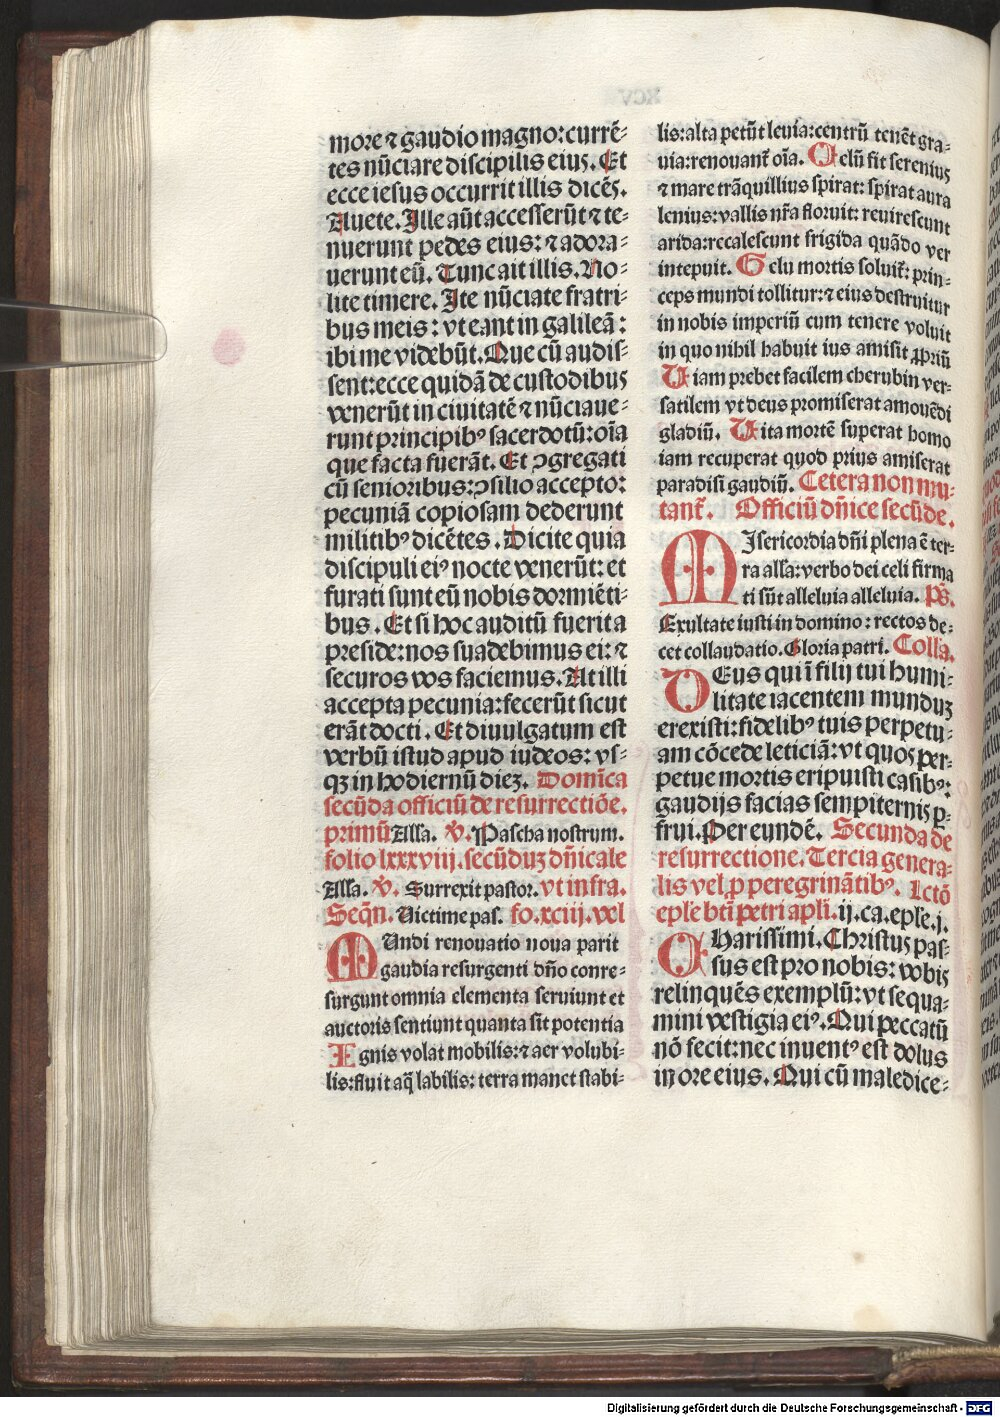 more ⁊ gaudio magno: currē-
tes nūciare discipilis eius. Et
ecce iesus occurrit illis dicēs.
Auete. Ille aūt accesserūt ⁊ te-
nuerunt pedes eius: ⁊ adora-
uerunt eū. Tunc ait illis. No-
lite timere. Ite nūciate fratri-
bus meis: vt eant in galileā:
ibi me videbūt. Que cū audis-
sent: ecce quidā de custodibus
venerūt in ciuitatē ⁊ nūciaue-
runt principibꝰ sacerdotū: oīa
que facta fuerāt. Et ꝯgregati
cū senioribus: ꝯsilio accepto:
pecuniā copiosam dederunt
militibꝰ dicētes. Dicite quia
discipuli eiꝰ nocte venerūt: et
furati sunt eū nobis dormiēti-
bus. Et si hoc auditū fuerit a
preside: nos suadebimus ei: ⁊
securos vos faciemus. At illi
accepta pecunia: fecerūt sicut
erāt docti. Et diuulgatum est
verbū istud apud iudeos: vs-
qꝫ in hodiernū dieꝫ. Domīca
secūda officiū de resurrectiōe.
primū Alla. ℣. Pascha nostrum.
folio lxxxviij. secūduꝫ dn̄icale
Alla. ℣. Surrexit pastor. vt infra.
Seqn̄. Victime pas. fo. xciij. vel
MUndi renouatio noua parit
gaudia resurgenti dn̄o conre-
surgunt omnia elementa seruiunt et
auctoris sentiunt quanta sit potentia
Ignis volat mobilis: ⁊ aer volubi-
lis: fluit aq̄ labilis: terra manet stabi-
lis: alta petūt leuia: centrū tenēt gra-
uia: renouant᷑ oīa. Celū fit serenius
⁊ mare trāquillius spirat: spirat aura
lenius: vallis nr̄a floruit: reuirescunt
arida: recalescunt frigida quādo ver
intepuit. Gelu mortis soluit᷑: prin-
ceps mundi tollitur: ⁊ eius destruitur
in nobis imperiū cum tenere voluit
in quo nihil habuit ius amisit ꝓpriū
Uiam prebet facilem cherubin ver-
satilem vt deus promiserat amouēdi
gladiū. Uita mortē superat homo
iam recuperat quod prius amiserat
paradisi gaudiū. Cetera non mu-
tant᷑. Officiū dn̄ice secūde.
MIsericordia dn̄i plena ē ter-
ra alla: verbo dei celi firma
ti sūt alleluia alleluia. Ps̄.
Exultate iusti in domino: rectos de-
cet collaudatio. Gloria patri. Colla.
DEus qui ī filij tui humi-
litate iacentem munduꝫ
erexisti: fidelibꝰ tuis perpetu-
am cōcede leticiā: vt quos per-
petue mortis eripuisti casibꝰ:
gaudijs facias sempiternis ꝑ-
frui. Per eundē. Secunda de
resurrectione. Tercia genera-
lis vel ꝓ peregrinātibꝰ. Lctō
eple bt̄i petri apli. ij. ca. eple. j.
CHarissimi. Christus pas-
sus est pro nobis: vobis
relinquēs exemplū: vt sequa-
mini vestigia eiꝰ. Qui peccatū
nō fecit: nec inuentꝰ est dolus
in ore eius. Qui cū maledice-
Digitalisierung gefördert durch die Deutsche Forschungsgemeinschaft - DFG